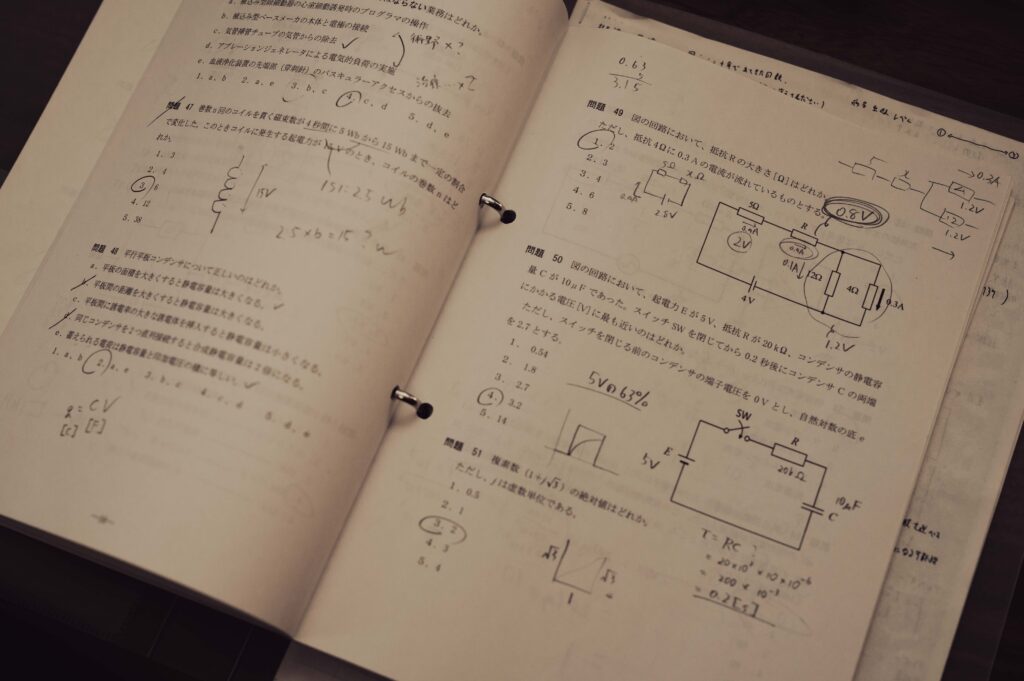 ならない業務はどれか。
a. 植込み型除細動器の心室細動誘発時のプログラマの操作
b. 植込み型ペースメーカの本体と電極の接続
c. 気管挿管チューブの気管からの除去
d. アブレーションジェネレータによる電気的負荷の実施
e. 血液浄化装置の先端部(穿刺針)のバスキュラーアクセスからの抜去
1. a、b 2. a、e 3. b、c 4. c、d 5. d、e
術野 × ?
問題 47 巻数n回のコイルを貫く磁束数が4秒間に5 Wbから15 Wbまで一定の割合
で変化した。このときコイルに発生する起電力が Vのとき、コイルの巻数nはど
れか。
1. 3
2. 4
3. 6
4. 12
5. 38
15V
2.5 × 6 = 15 ?
問題 48 平行平板コンデンサについて正しいのはどれか。
a. 平板の面積を大きくすると静電容量は大きくなる。
b. 平板間の距離を大きくすると静電容量は大きくなる。
c. 平板間に誘電率の大きな誘電体を挿入すると静電容量は小さくなる。
d. 同じコンデンサを2つ直列接続すると合成静電容量は2倍になる。
e. 蓄えられる電荷は静電容量と印加電圧の積に等しい。
1. a、b 2. a、e 3. b、c 4. c、d 5. d、e
q = CV
[C] [F]
0.63
5
3.15
問題 49 図の回路において、抵抗Rの大きさ[Ω]はどれか。
ただし、抵抗4Ωに0.3 Aの電流が流れているものとする。
1. 2
2. 3
3. 4
4. 6
5. 8
5Ω
2.8V
5Ω
0.4A
2V
R
0.4A
0.8V
0.1A
12Ω
4Ω
0.3A
4V
1.2V
0.3A
1.2V
1.2V
問題 50 図の回路において、起電力Eが5 V、抵抗Rが20 kΩ、コンデンサの静電容
量Cが10 μFであった。スイッチSWを閉じてから0.2秒後にコンデンサCの両端
にかかる電圧[V]に最も近いのはどれか。
ただし、スイッチを閉じる前のコンデンサの端子電圧を0 Vとし、自然対数の底e
を2.7とする。
1. 0.54
2. 1.8
3. 2.7
4. 3.2
5. 14
5Vの63%
SW
R
20kΩ
E
5V
10μF
C
T = RC
= 20×10³ × 10×10⁻⁶
= 200 × 10⁻³
= 0.2[s]
問題 51 複素数(1+j√3)の絶対値はどれか。
ただし、jは虚数単位である。
1. 0.5
2. 1
3. 2
4. 3
5. 4
√3
√3
1